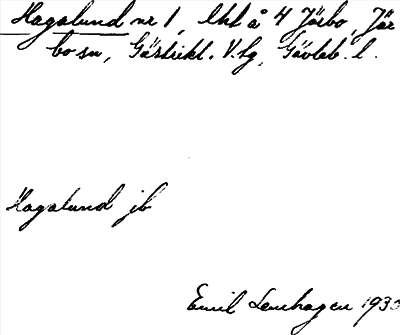 Hagalund nr 1, lht å 4 Järbo, Jär
bo sn, Gästrikl. V. tg, Gävleb. l.
Hagalund jb
Emil Lenhagen 1933